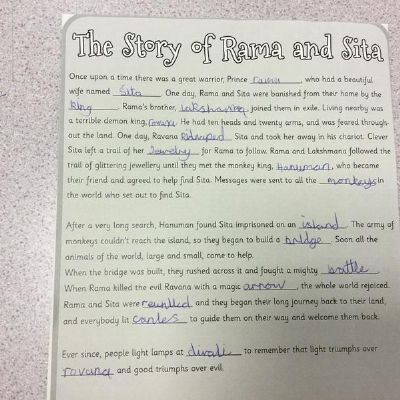 The Story of Rama and Sita
Once upon a time there was a great warrior, Prince rama, who had a beautiful
wife named Sita. One day, Rama and Sita were banished from their home by the
king. Rama's brother, lakshaman, joined them in exile. Living nearby was
a terrible demon king, ravana. He had ten heads and twenty arms, and was feared through-
out the land. One day, Ravana Kidnaped Sita and took her away in his chariot. Clever
Sita left a trail of her Jewelry for Rama to follow. Rama and Lakshmana followed the
trail of glittering jewellery until they met the monkey king, Hanuman, who became
their friend and agreed to help find Sita. Messages were sent to all the monkeys in
the world who set out to find Sita.
After a very long search, Hanuman found Sita imprisoned on an island. The army of
monkeys couldn't reach the island, so they began to build a bridge. Soon all the
animals of the world, large and small, came to help.
When the bridge was built, they rushed across it and fought a mighty battle.
When Rama killed the evil Ravana with a magic arrow, the whole world rejoiced.
Rama and Sita were reunited and they began their long journey back to their land,
and everybody lit candles to guide them on their way and welcome them back.
Ever since, people light lamps at divali to remember that light triumphs over
rovana and good triumphs over evil.